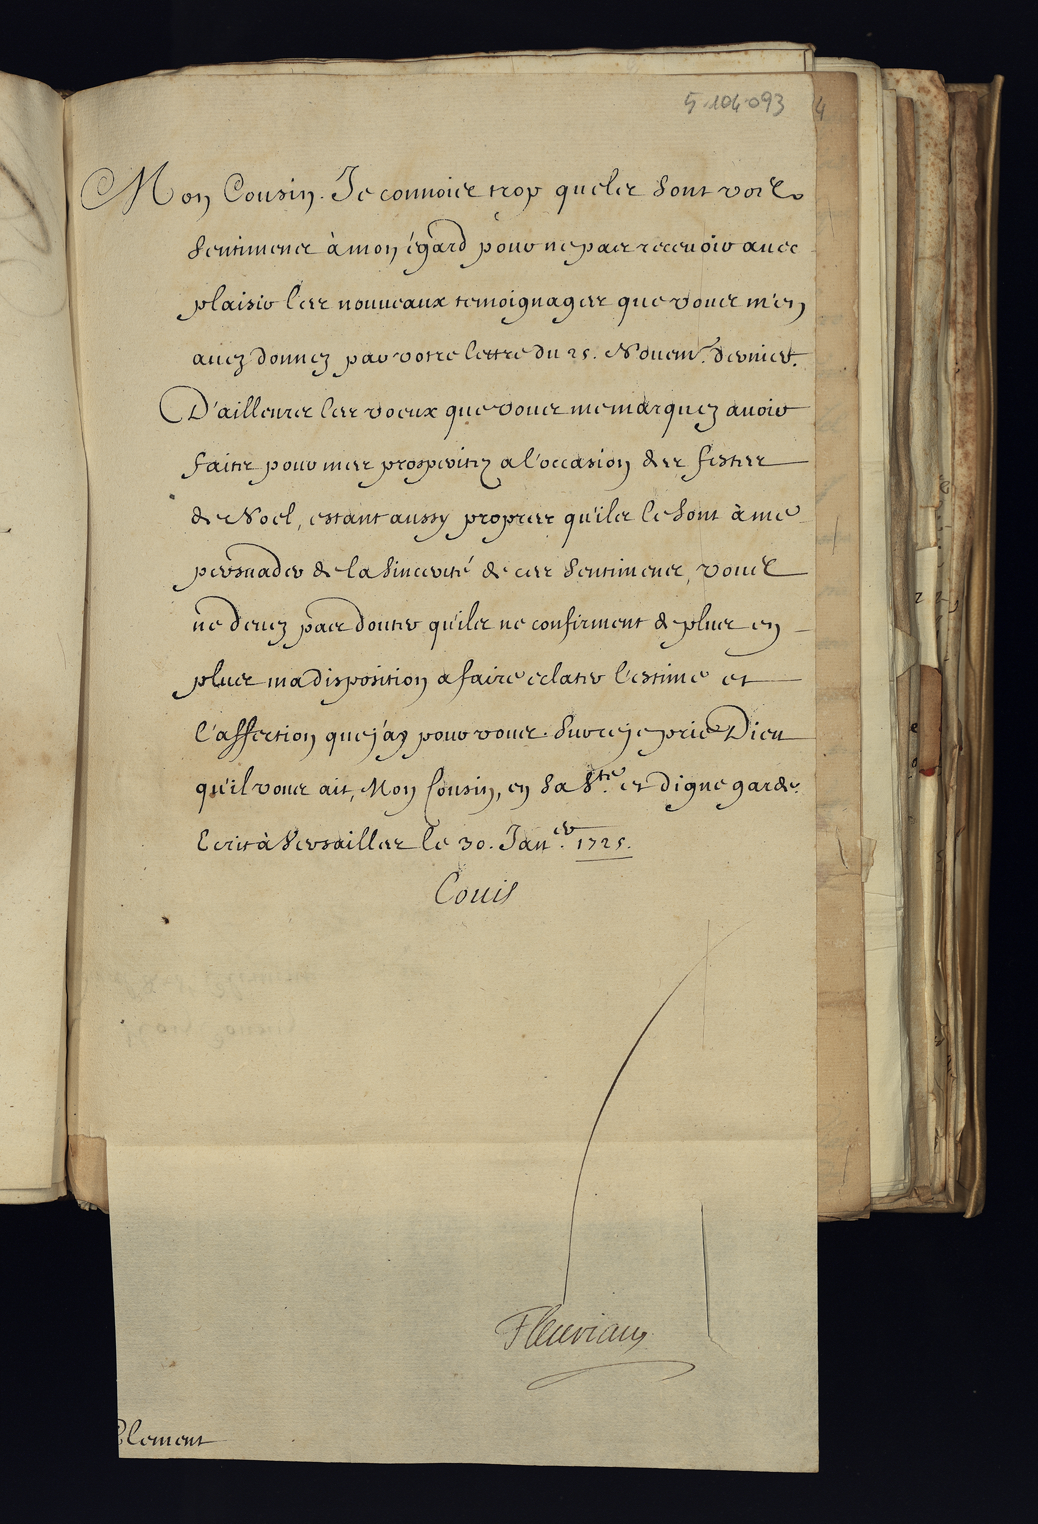 5.104.093
4
Mon Cousin. Je connois trop queles sont vos
sentimens à mon égard pour ne pas recevoir avec
plaisir les nouveaux temoignages que vous m'en
avez donnez par votre lettre du 25. Novem.e dernier.
D'ailleurs les voeux que vous me marquez avoir
faits pour mes prosperitez a l'occasion des festes
de Noel, estant aussy propres qu'ils le sont à me
persuader de la sincerité de ces sentimens, vous
ne devez pas douter qu'ils ne confirment de plus en
plus ma disposition a faire eclater l'estime et
l'affection que j'ay pour vous. Sur ce je prie Dieu
qu'il vous ait, Mon Cousin, en sa S.te et digne garde.
Ecrit à Versailles le 30. Jan.er 1725.
Louis
Fleuriau
Clement